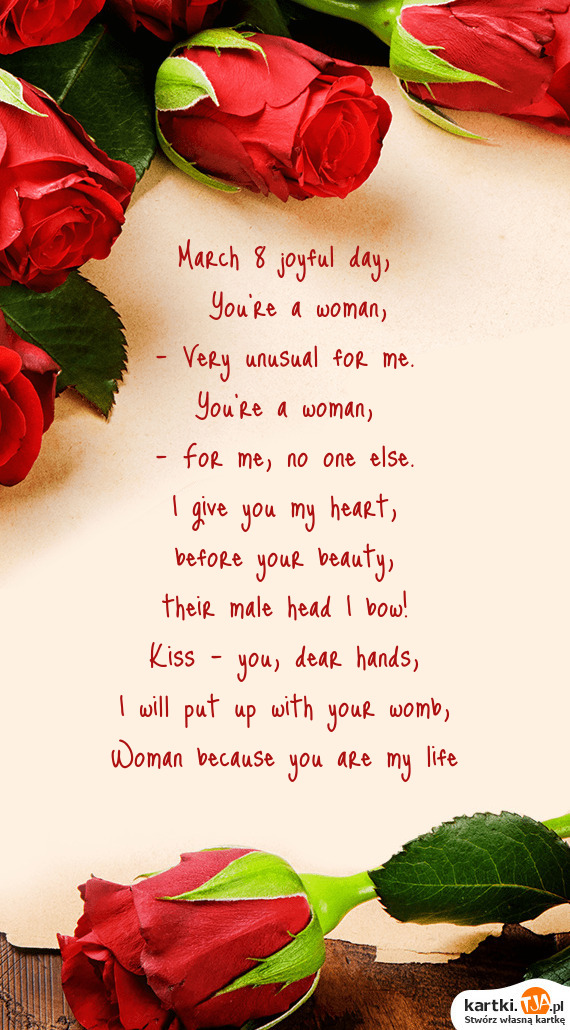 March 8 joyful day,
You're a woman,
- Very unusual for me.
You're a woman,
- For me, no one else.
I give you my heart,
before your beauty,
their male head I bow!
Kiss - you, dear hands,
I will put up with your womb,
Woman because you are my life
kartki.TJA.pl
Stwórz własną kartkę